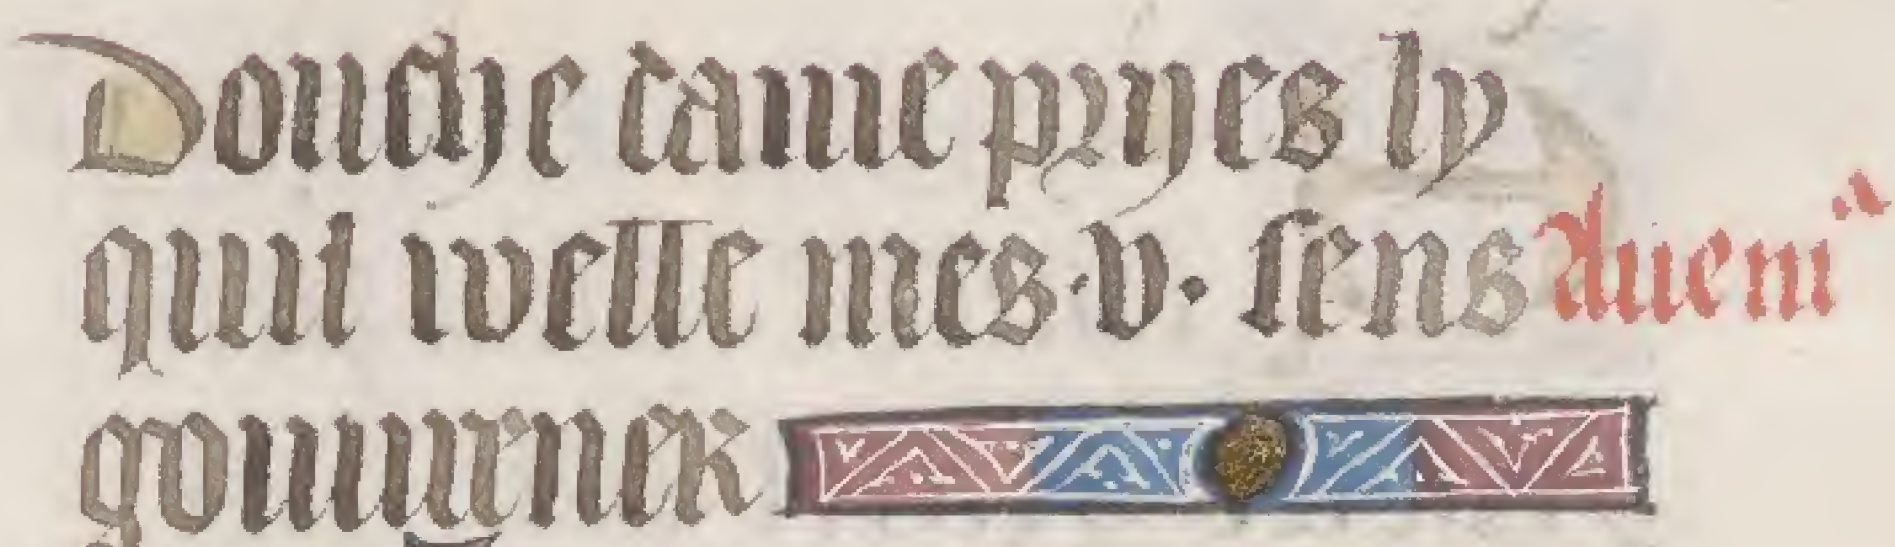 Douche dame pryes ly
quil welle mes ·v· sens aueria
gouuerner